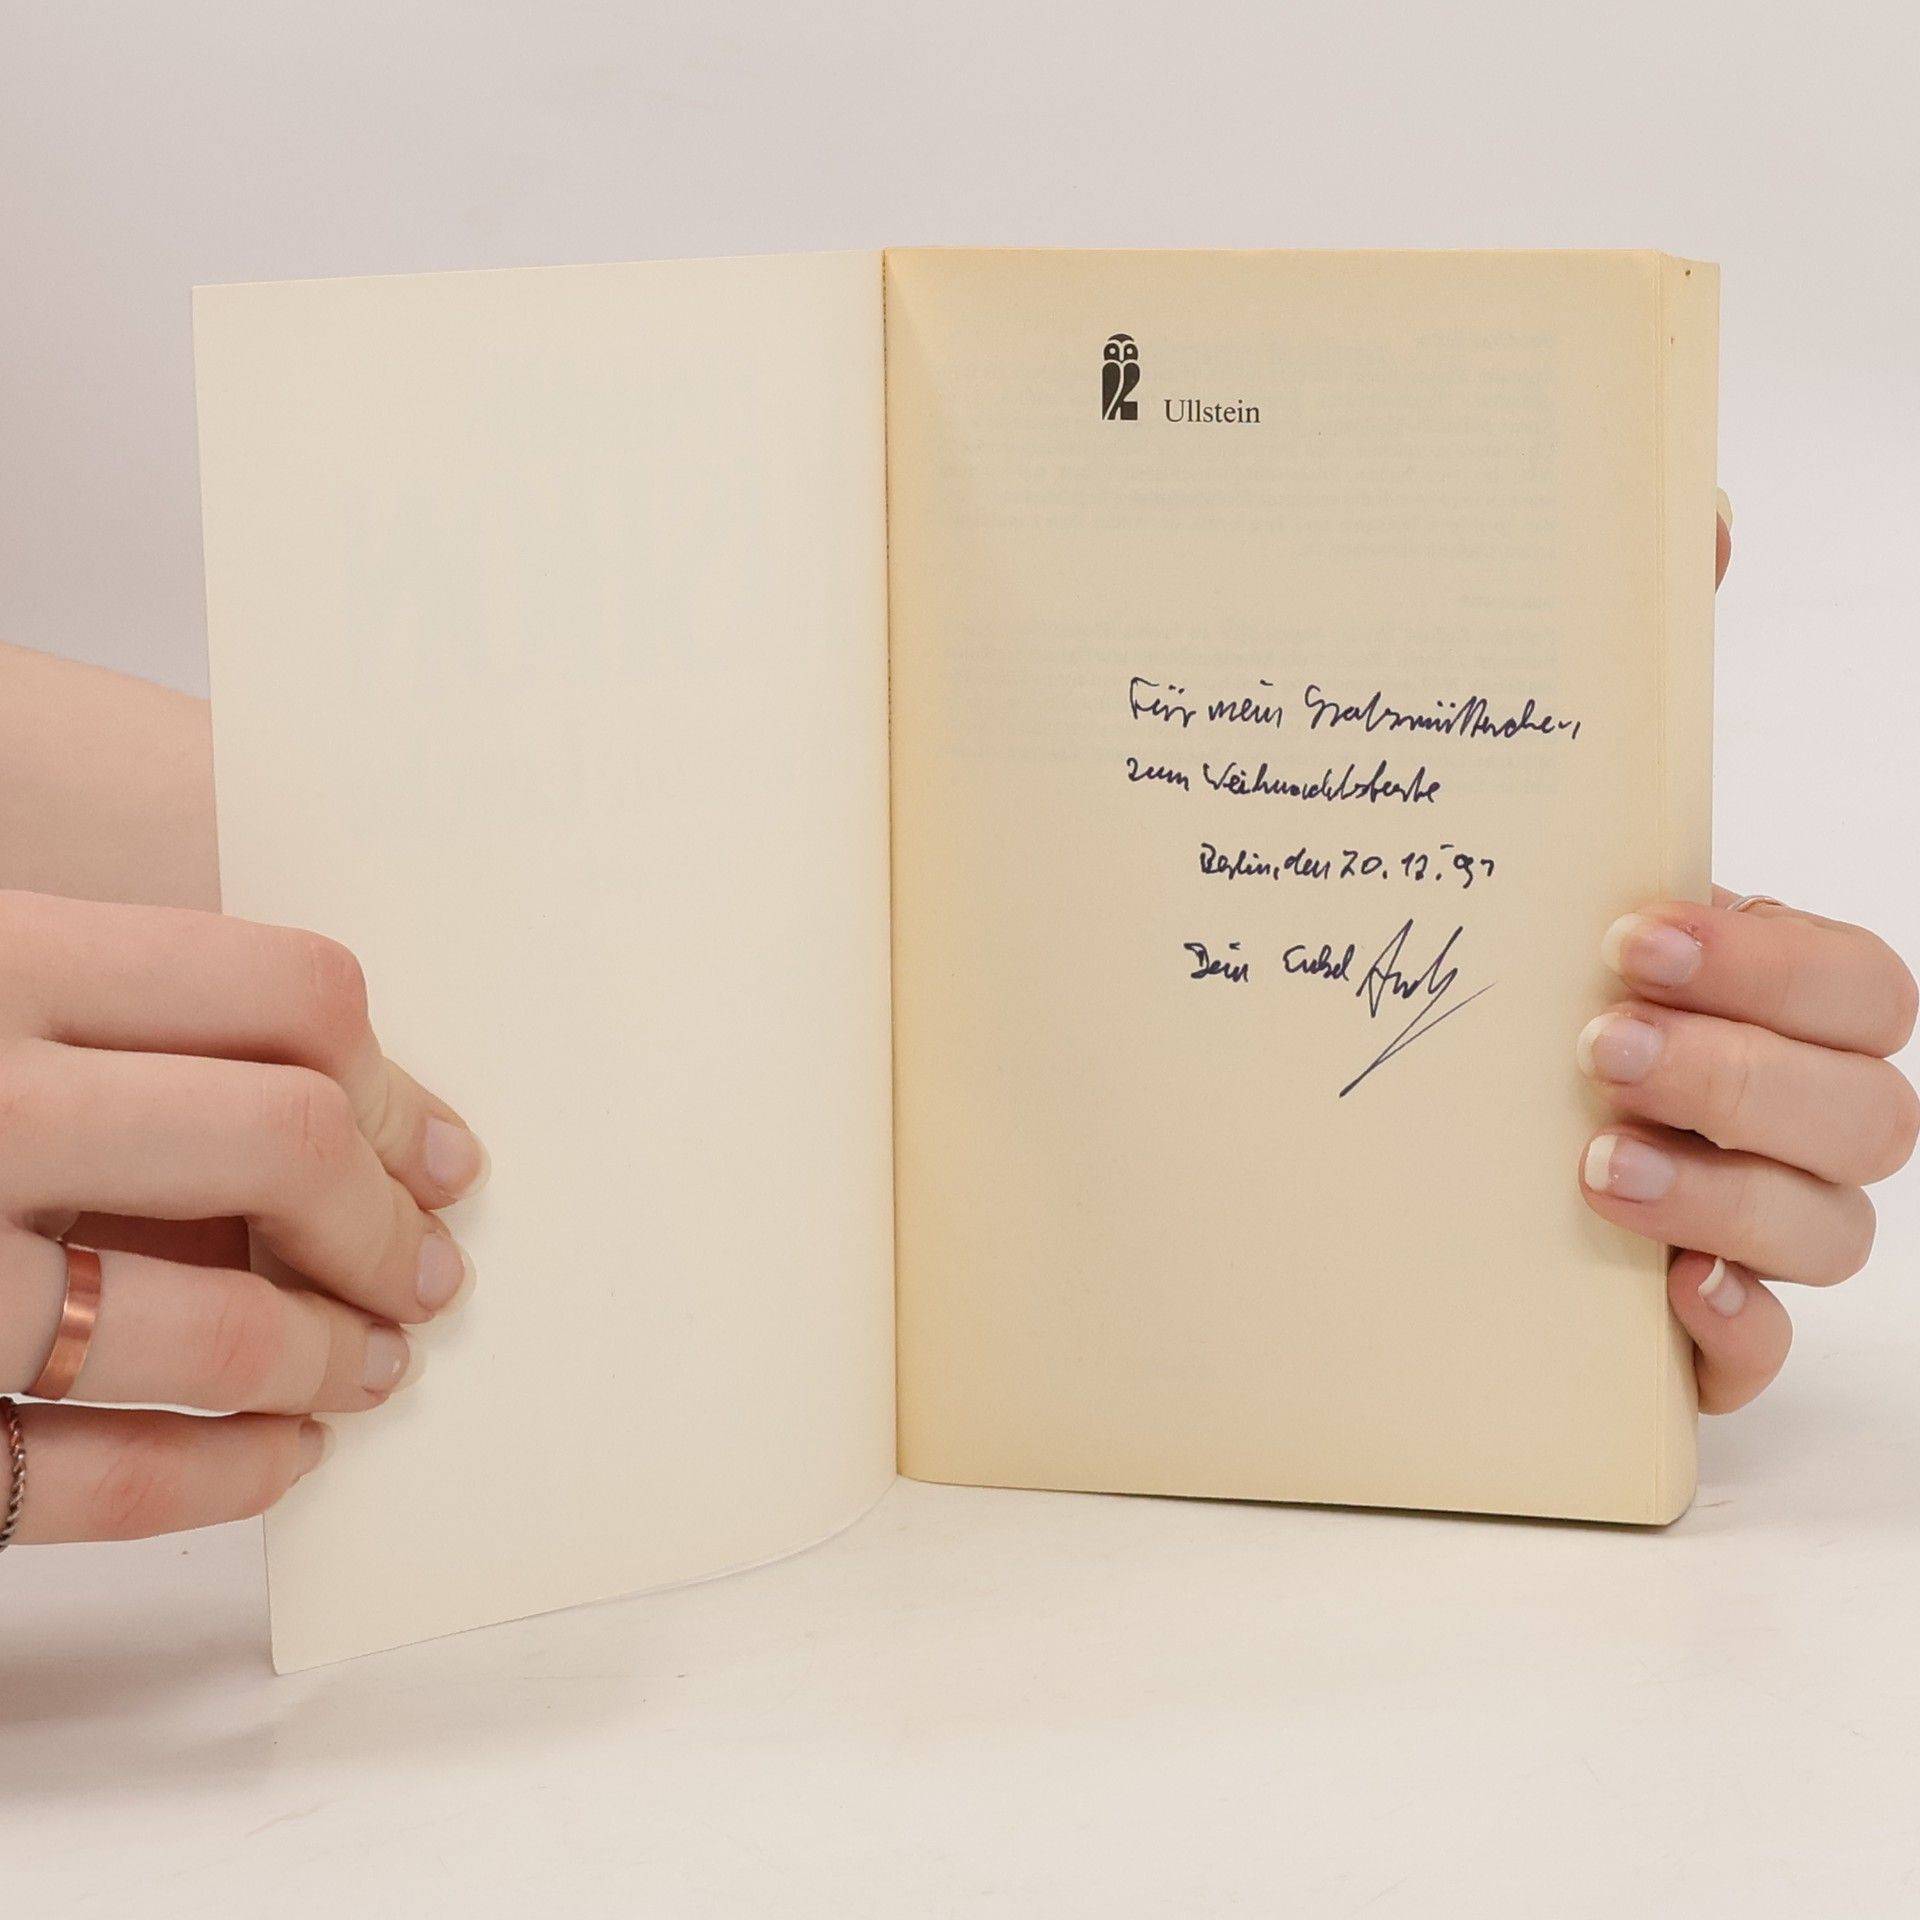 Ullstein
Für mein Großmütterchen,
zum Weihnachtsfeste
Berlin, den 20.12.97
Dein Enkel